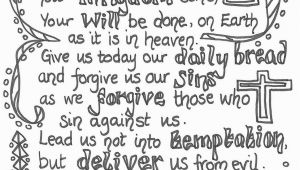 Your Will be done, on Earth
as it is in heaven.
Give us today our daily bread
and forgive us our Sins
as we forgive those who
Sin against us.
Lead us not into temptation,
but deliver us from evil.